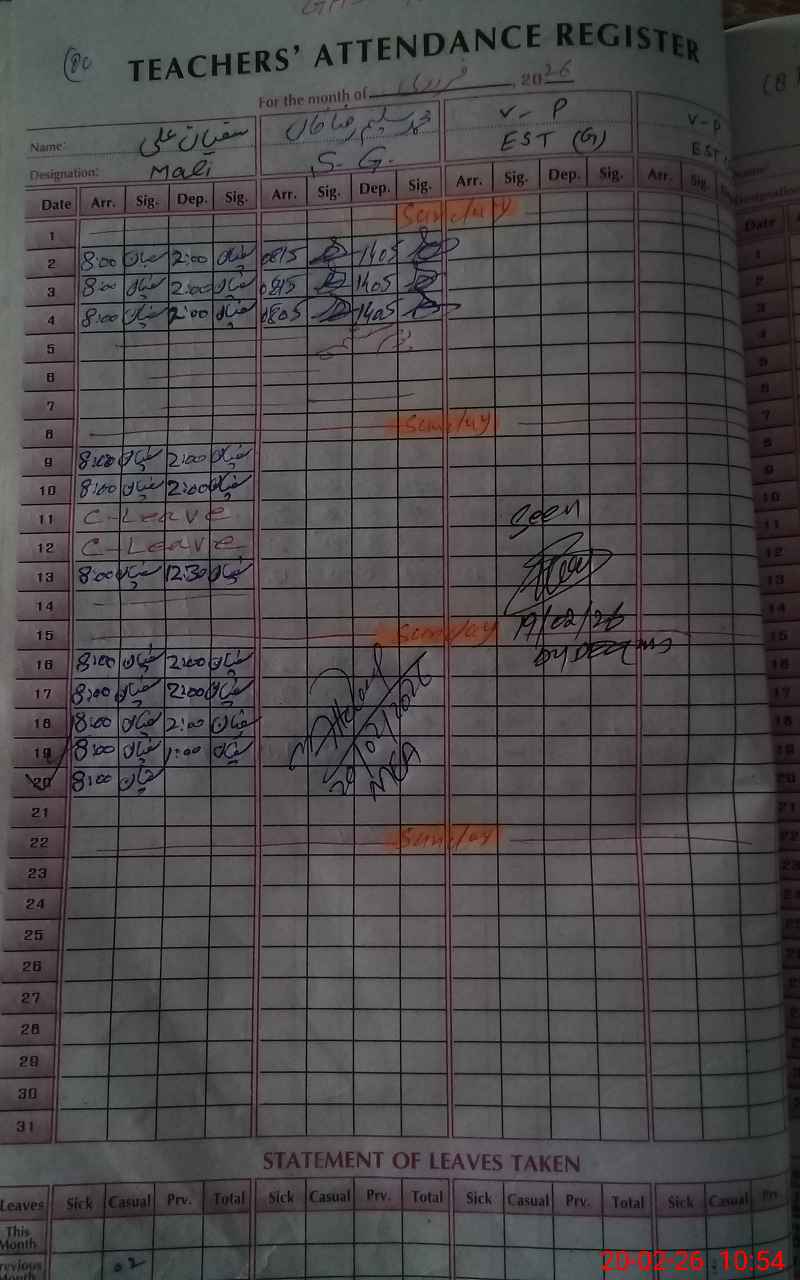 TEACHERS' ATTENDANCE REGISTER
For the month of فروری, 2026
Name: سفیان علی محمد سلیم رضا خان V-P V-P
Designation: Mali S.G. EST (G) EST.
Date Arr. Sig. Dep. Sig. Arr. Sig. Dep. Sig. Arr. Sig. Dep. Sig. Arr. Sig.
1 Sunday
2 8:00 سفیان 2:00 سفیان 0815 1405
3 8:00 سفیان 2:00 سفیان 0815 1405
4 8:00 سفیان 2:00 سفیان 0805 1405
5
6
7
8 Sunday
9 8:00 سفیان 2:00 سفیان
10 8:00 سفیان 2:00 سفیان
11 C-Leave Seen
12 C-Leave
13 8:00 سفیان 12:30 سفیان
14
15 Sunday 19/02/26
16 8:00 سفیان 2:00 سفیان
17 8:00 سفیان 2:00 سفیان
18 8:00 سفیان 2:00 سفیان
19 8:00 سفیان 1:00 سفیان 20/02/2026
20 8:00 سفیان MEA
21
22 Sunday
23
24
25
26
27
28
29
30
31
STATEMENT OF LEAVES TAKEN
Leaves Sick Casual Prv. Total Sick Casual Prv. Total Sick Casual Prv. Total Sick Casual Prv.
This Month
Previous Month 02
20-02-26 10:54